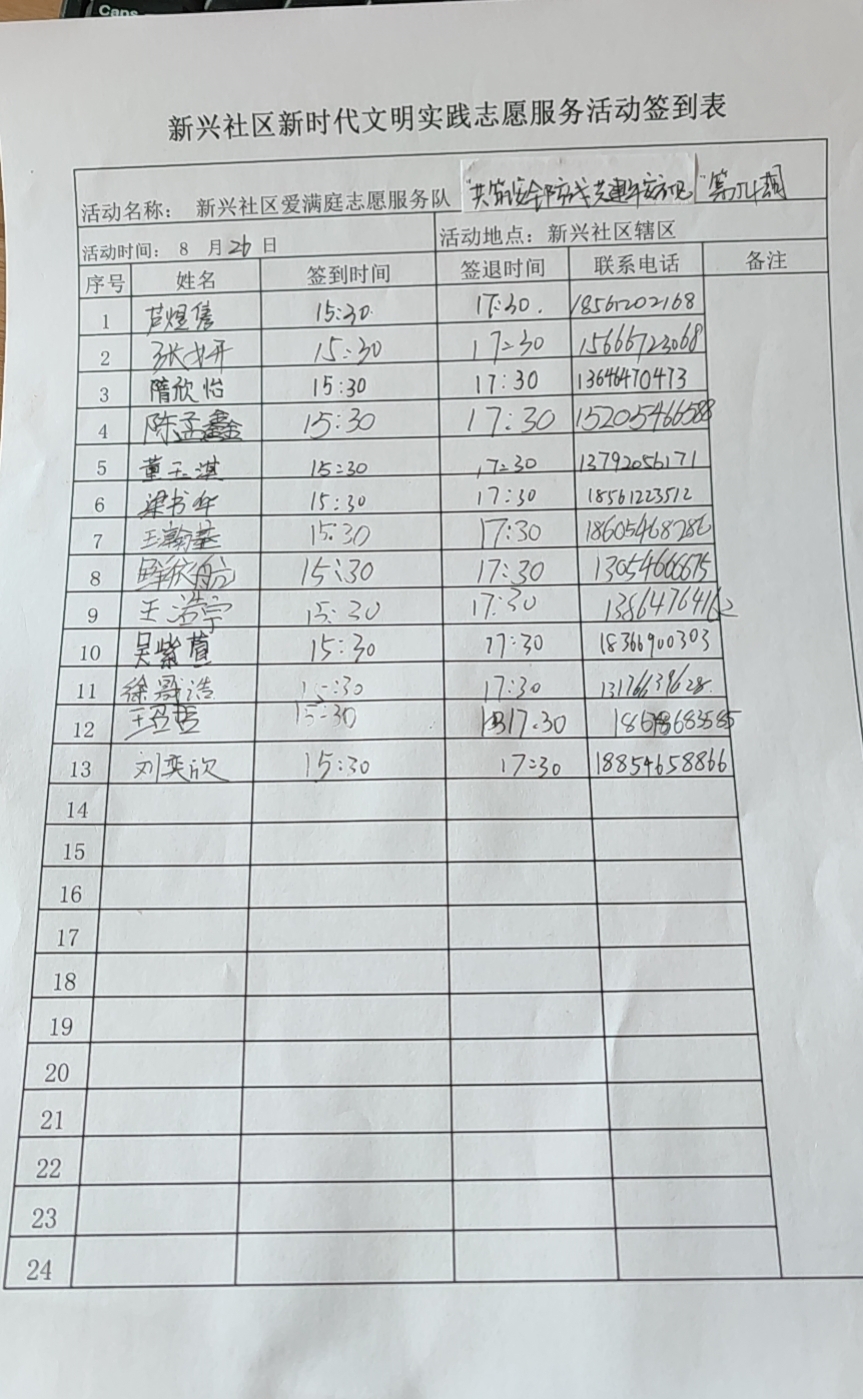 Caps
新兴社区新时代文明实践志愿服务活动签到表
活动名称: 新兴社区爱满庭志愿服务队 "共筑安全防线 共建平安
活动时间: 8 月 26 日 活动地点: 新兴社区辖区
序号 姓名 签到时间 签退时间 联系电话 备注
1 15:30 17:30. 18561202168
2 张妍 15:30 17:30 15666723068
3 隋欣怡 15:30 17:30 13646470473
4 陈孟鑫 15:30 17:30 15205466588
5 董玉淇 15:30 17:30 13792056171
6 梁书华 15:30 17:30 18561223512
7 15:30 17:30 18605468286
8 15:30 17:30 13054666675
9 王浩宇 15:30 17:30 13864764162
10 吴紫萱 15:30 17:30 18366900303
11 15:30 17:30 13176639628
12 15:30 17:30
13 刘奕欣 15:30 17:30 18854658866
14
15
16
17
18
19
20
21
22
23
24